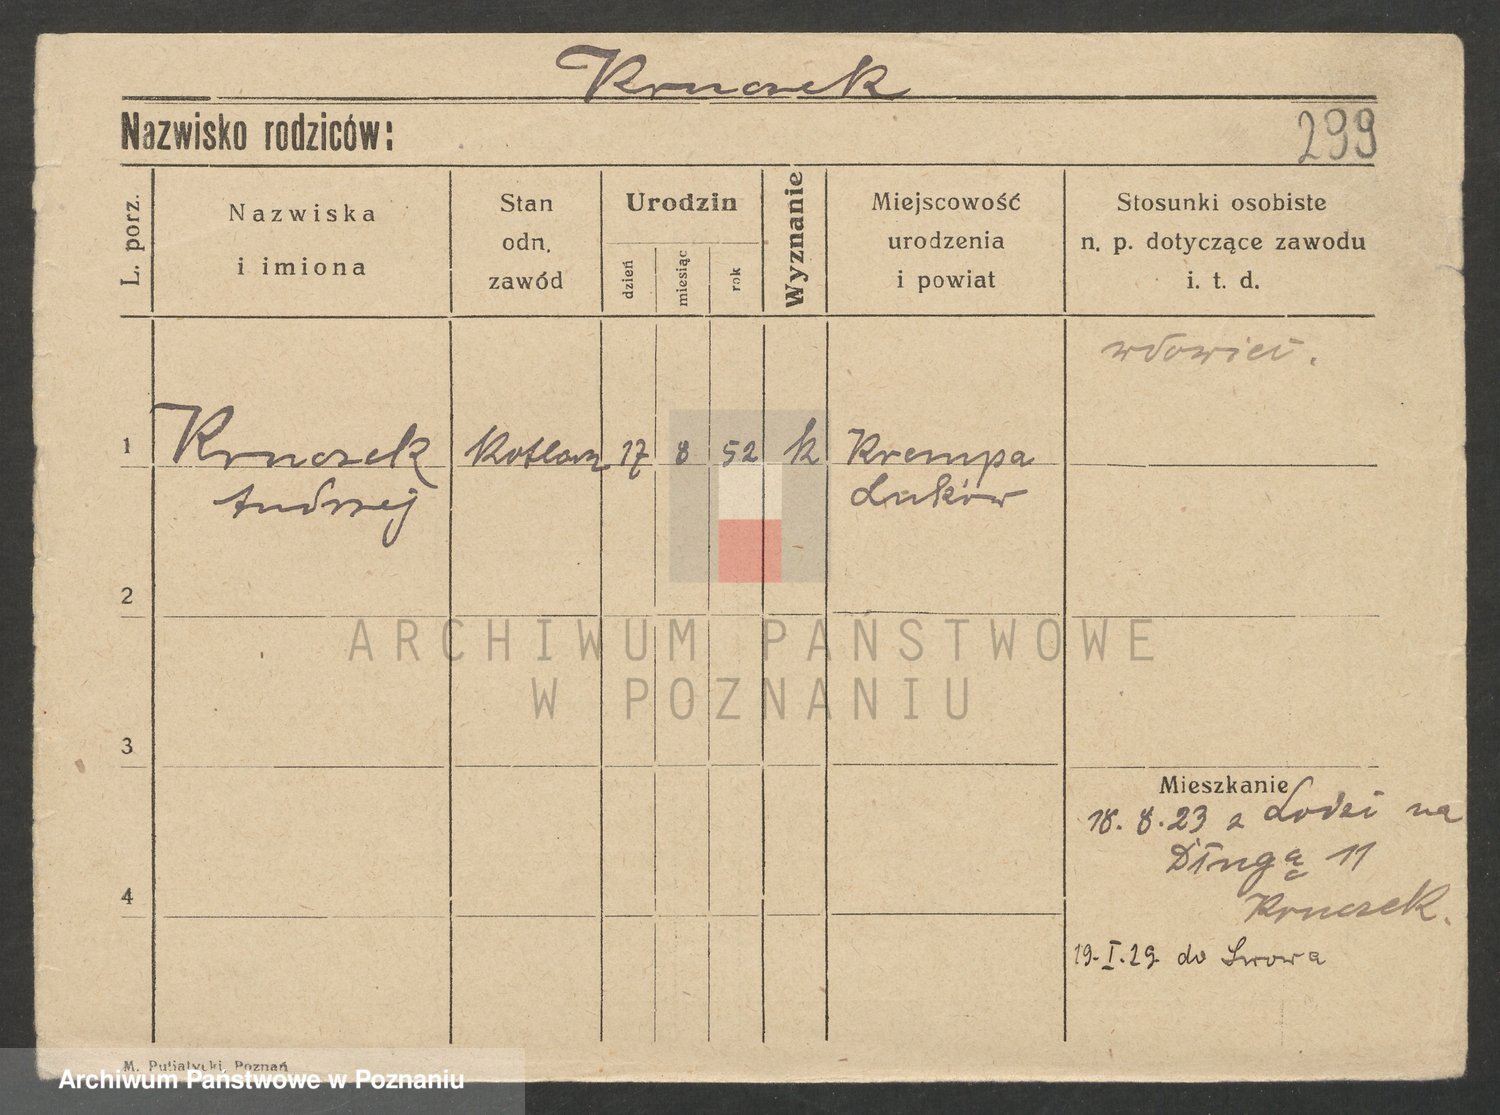 Kruczek
Nazwisko rodziców:
299
L. porz.
Nazwiska
i imiona
Stan
odn.
zawód
Urodzin
dzień
miesiąc
rok
Wyznanie
Miejscowość
urodzenia
i powiat
Stosunki osobiste
n. p. dotyczące zawodu
i. t. d.
wdowiec.
1 Kruczek Kotlarz 17 8 52 k Krempa
Andrzej Łuków
2
3
Mieszkanie
18. 8. 23 z Łodzi na
Długą 11
Kruczek.
4
19. I. 29. do Lwowa
M. Putiatycki, Poznań
ARCHIWUM PAŃSTWOWE
W POZNANIU
Archiwum Państwowe w Poznaniu